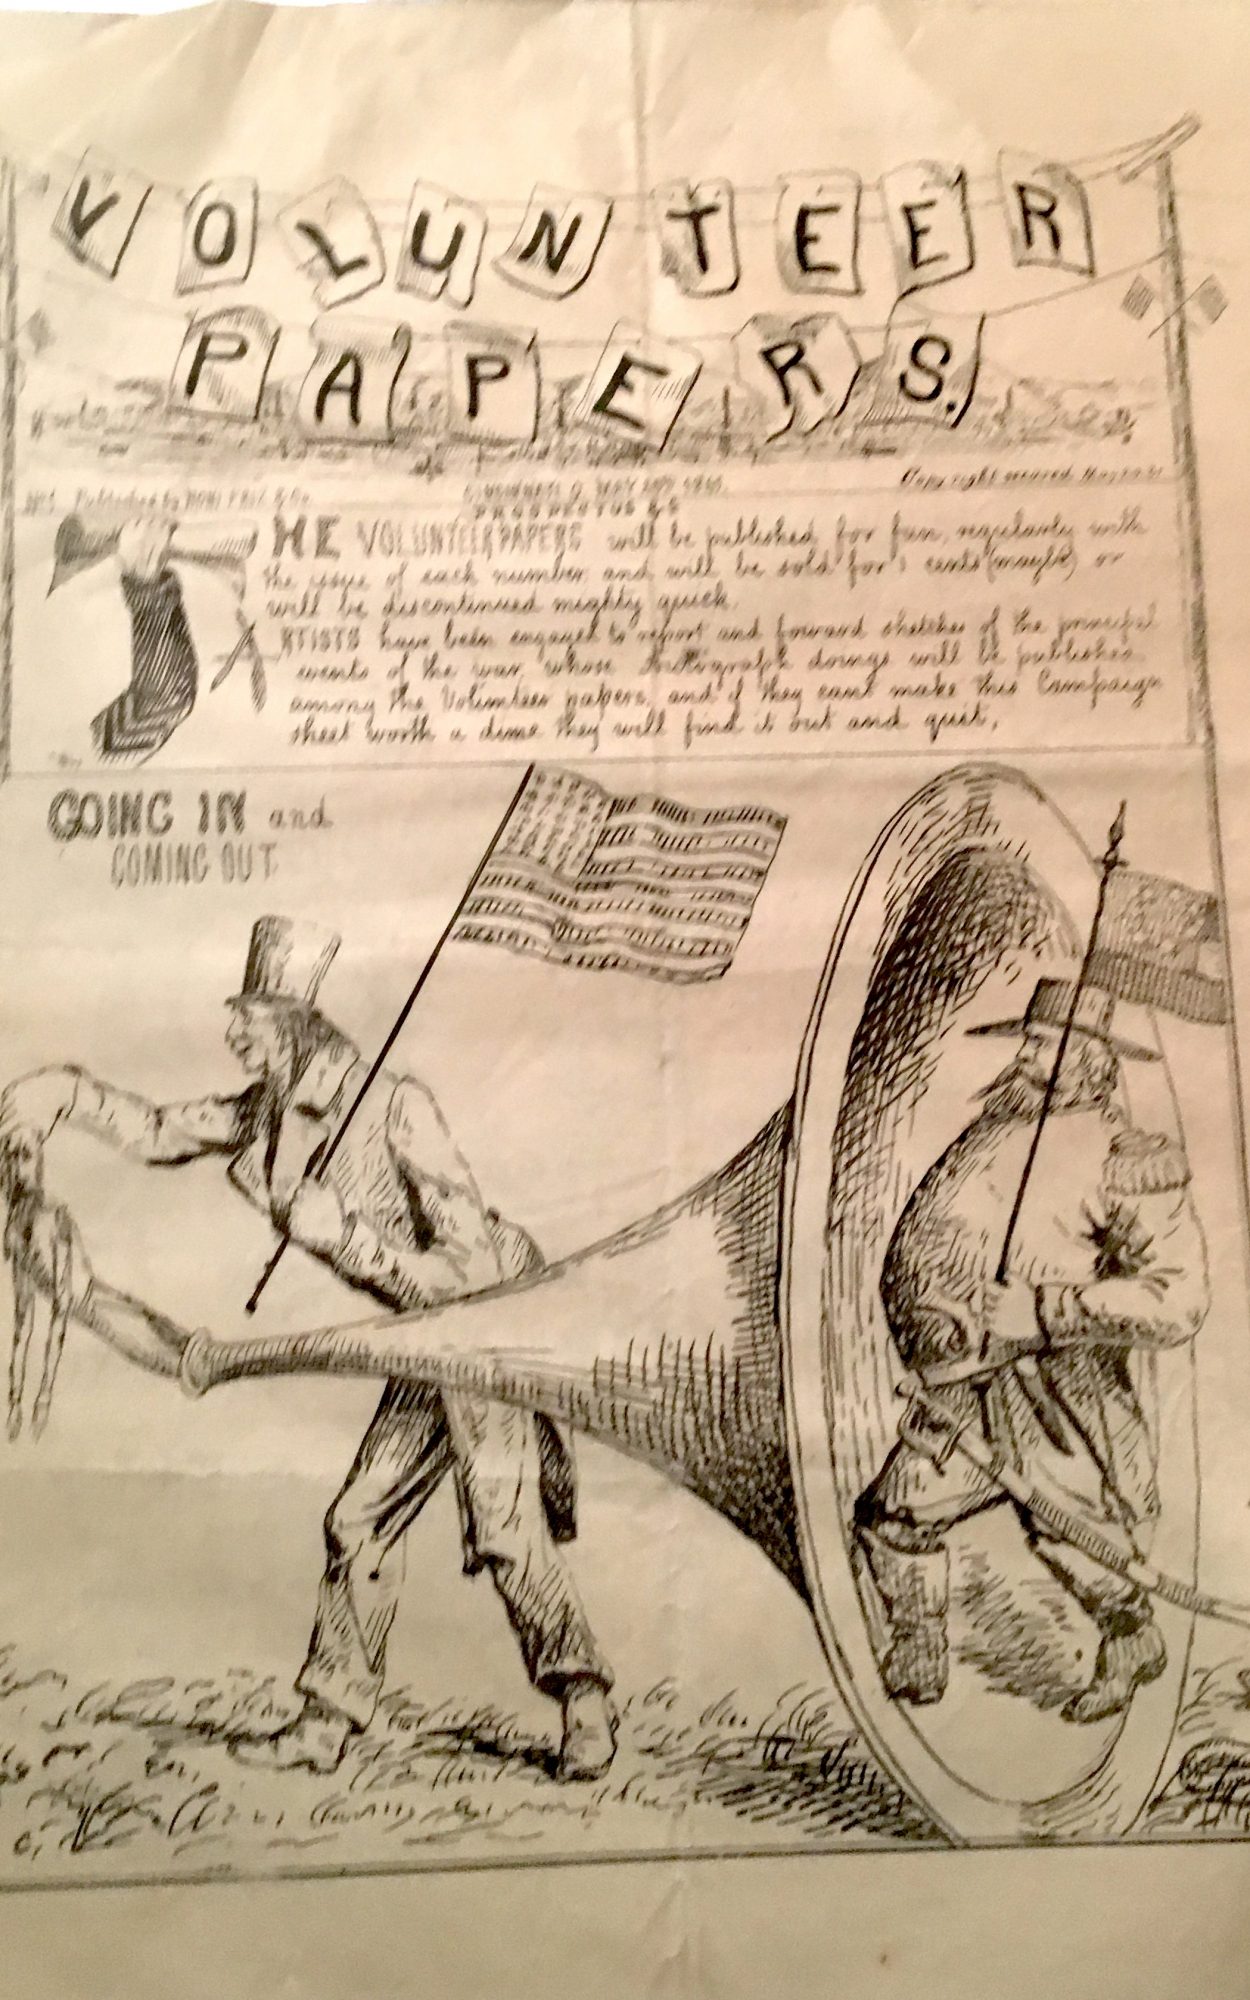 VOLUNTEER
PAPERS.
No 1. Published by
CINCINNATI O. MAY
Copyright secured
PROSPECTUS &c
THE VOLUNTEER PAPERS will be published for fun, regularly with
the issue of each number and will be sold for 5 cents (maybe) or
will be discontinued mighty quick.
ARTISTS have been engaged to report and forward sketches of the principal
events of the war, whose Autograph doings will be published
among the Volunteer papers, and if they cant make this Campaign
sheet worth a dime they will find it out and quit.
GOING IN and
COMING OUT